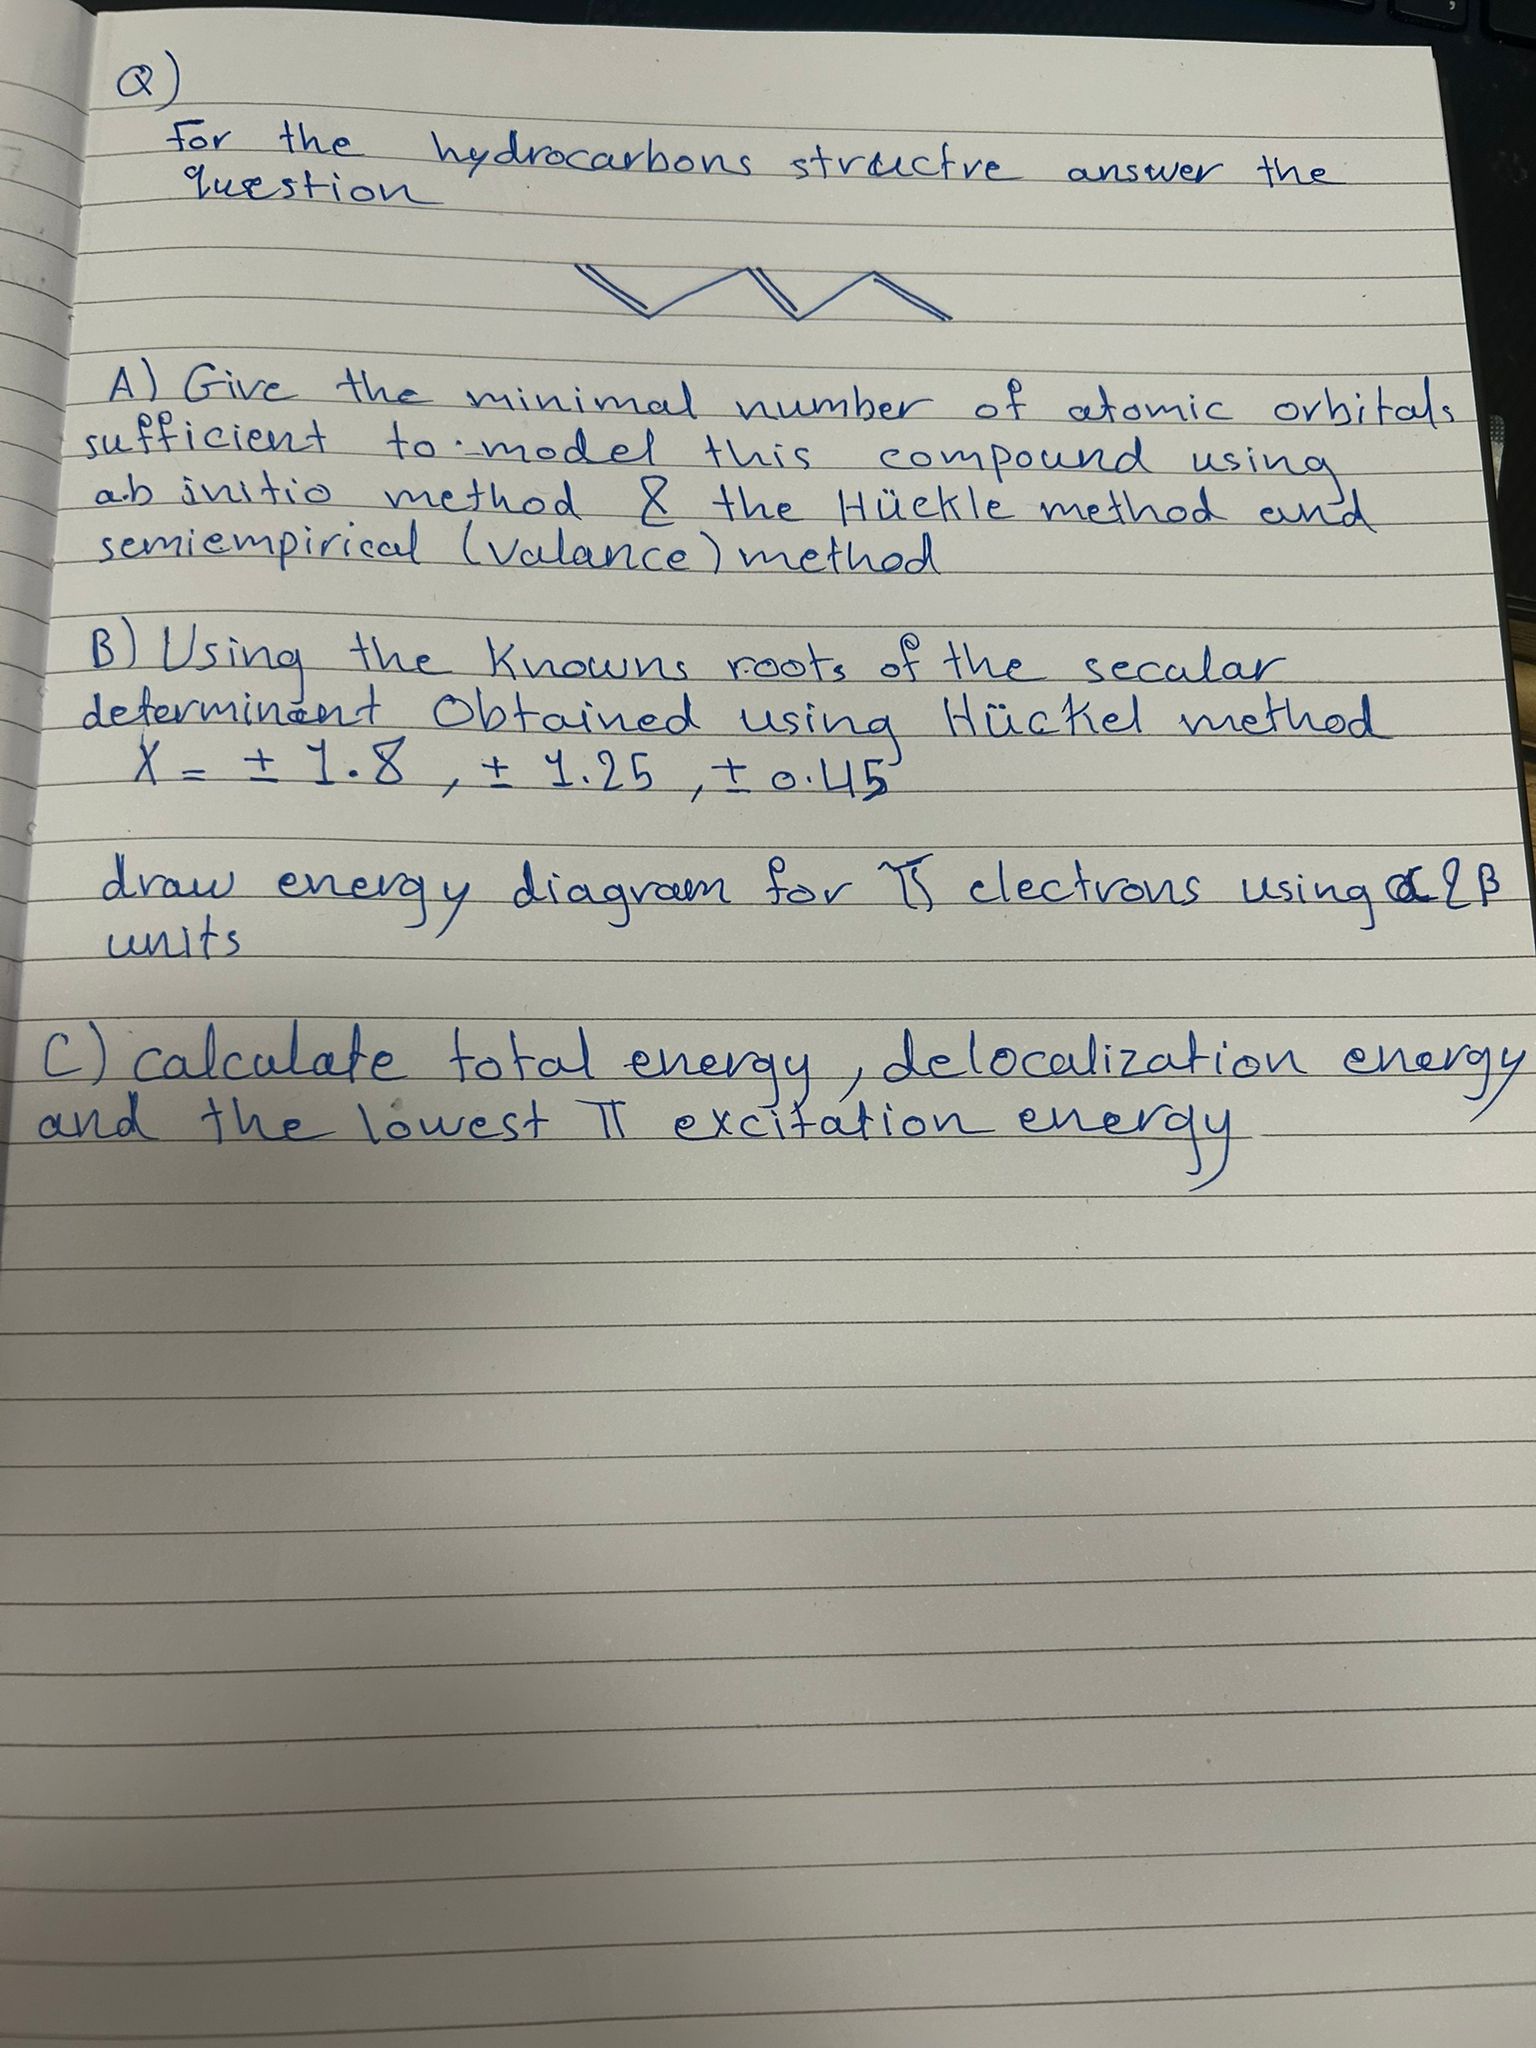 Q)
For the hydrocarbons structre answer the
question
A) Give the minimal number of atomic orbitals
sufficient to model this compound using
ab initio method & the Hückle method and
semiempirical (valance) method
B) Using the Knowns roots of the secular
determinant Obtained using Hückel method
X = ± 1.8 , ± 1.25 , ± 0.45
draw energy diagram for π electrons using α & β
units
C) calculate total energy, delocalization energy
and the lowest π excitation energy